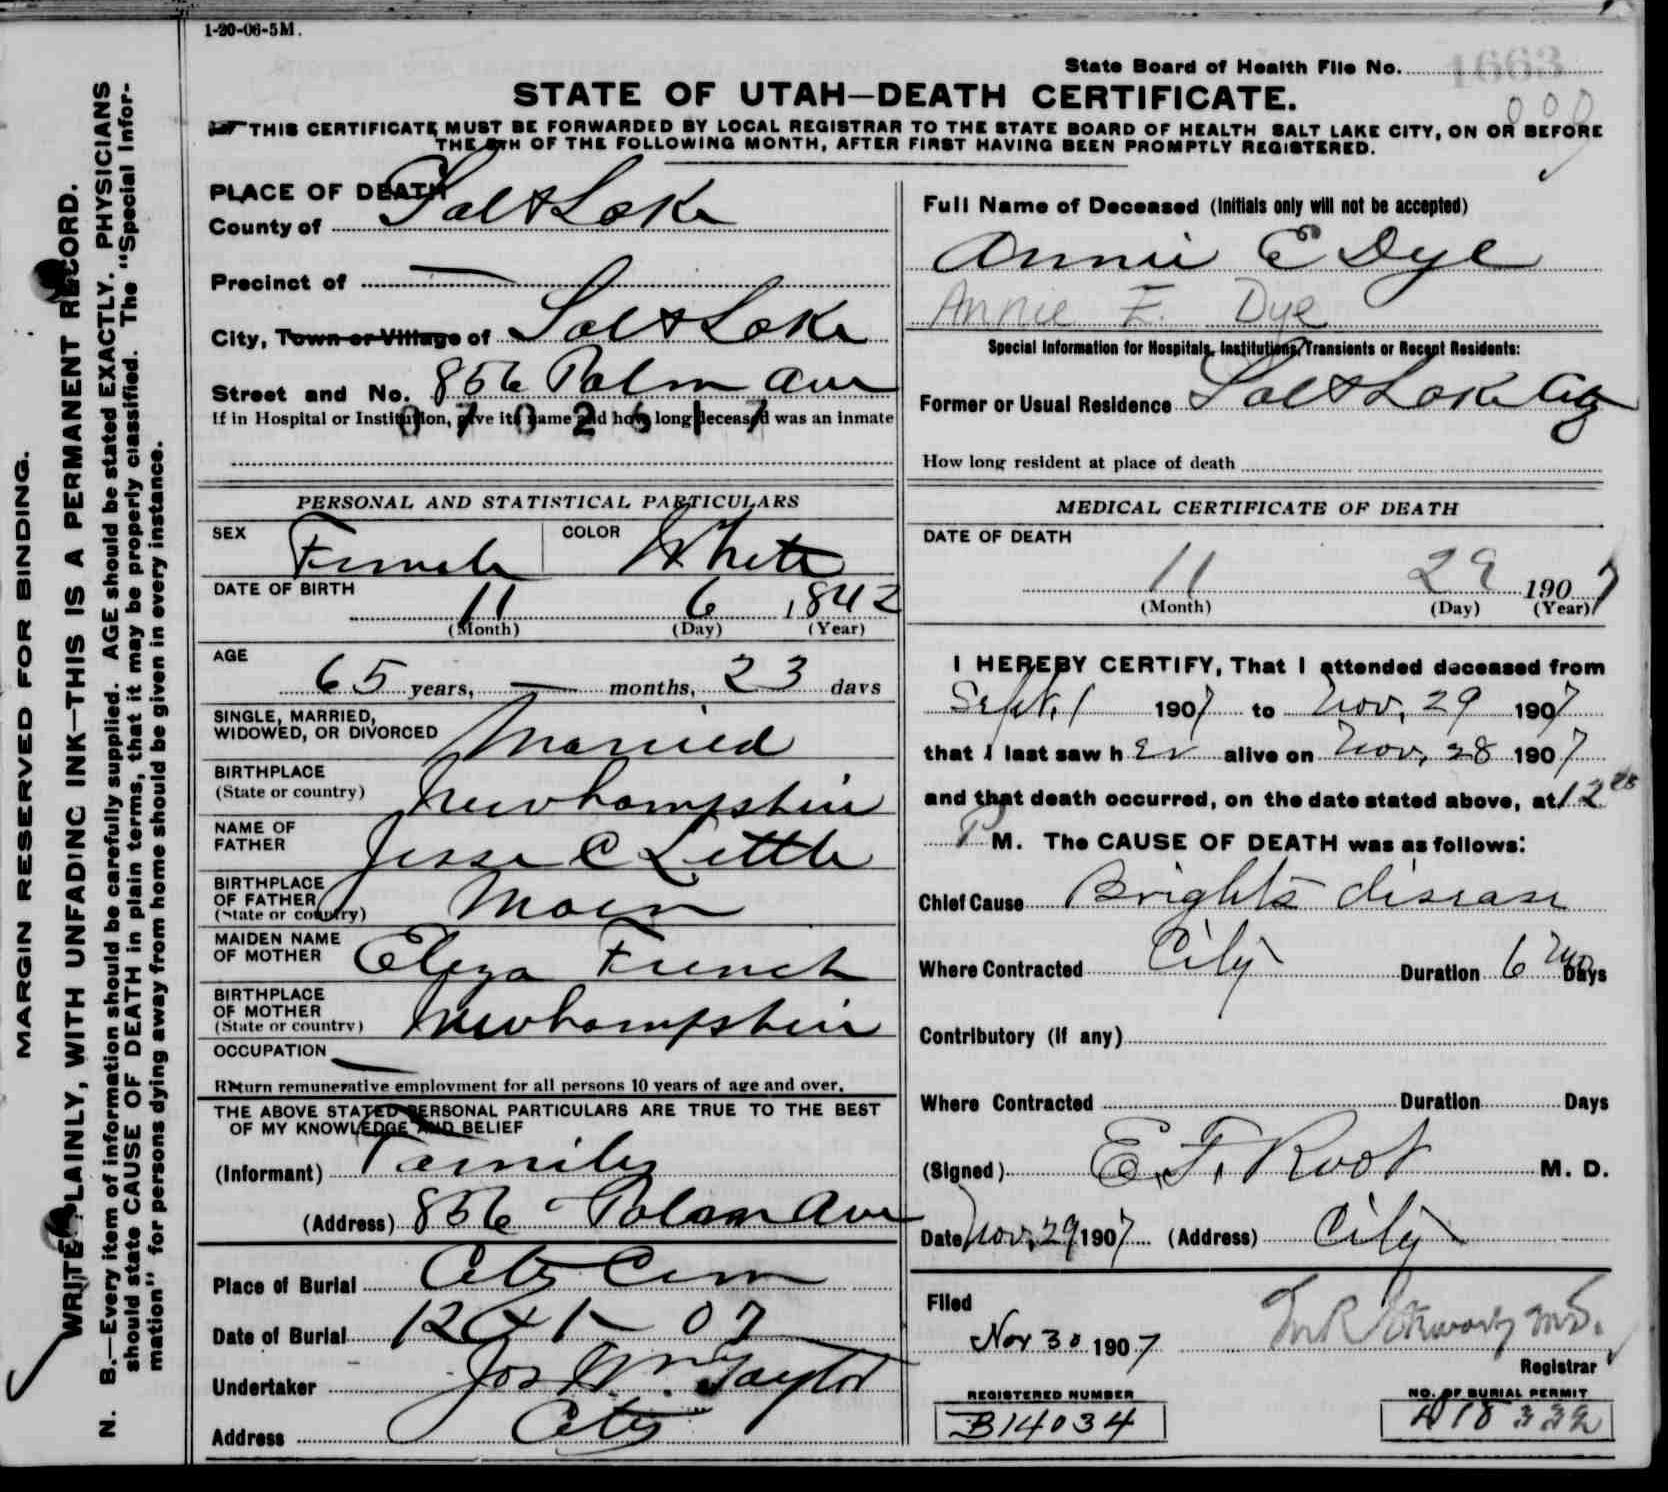 1-20-06-5M.
State Board of Health File No. 1663
STATE OF UTAH—DEATH CERTIFICATE.
THIS CERTIFICATE MUST BE FORWARDED BY LOCAL REGISTRAR TO THE STATE BOARD OF HEALTH SALT LAKE CITY, ON OR BEFORE
THE 5TH OF THE FOLLOWING MONTH, AFTER FIRST HAVING BEEN PROMPTLY REGISTERED.
MARGIN RESERVED FOR BINDING.
WRITE PLAINLY, WITH UNFADING INK—THIS IS A PERMANENT RECORD.
N. B.—Every item of information should be carefully supplied. AGE should be stated EXACTLY. PHYSICIANS
should state CAUSE OF DEATH in plain terms, that it may be properly classified. The "Special Infor-
mation" for persons dying away from home should be given in every instance.
PLACE OF DEATH
County of Salt Lake
Precinct of —
City, Town or Village of Salt Lake
Street and No. 856 Palm Ave
If in Hospital or Institution, give its name and how long deceased was an inmate
0702617
PERSONAL AND STATISTICAL PARTICULARS
SEX Female COLOR White
DATE OF BIRTH
11 6 1842
(Month) (Day) (Year)
AGE
65 years, — months, 23 days
SINGLE, MARRIED,
WIDOWED, OR DIVORCED Married
BIRTHPLACE
(State or country) Newhampshire
NAME OF
FATHER Jesse C Little
BIRTHPLACE
OF FATHER
(State or country) Main
MAIDEN NAME
OF MOTHER Eliza French
BIRTHPLACE
OF MOTHER
(State or country) Newhampshire
OCCUPATION —
Return remunerative employment for all persons 10 years of age and over.
THE ABOVE STATED PERSONAL PARTICULARS ARE TRUE TO THE BEST
OF MY KNOWLEDGE AND BELIEF
(Informant) Family
(Address) 856 Palm Ave
Place of Burial City Cem
Date of Burial 12 1 07
Undertaker Jos Wm. Taylor
Address City
Full Name of Deceased (Initials only will not be accepted)
Annie E Dye
Annie E. Dye
Special Information for Hospitals, Institutions, Transients or Recent Residents:
Former or Usual Residence Salt Lake City
How long resident at place of death
MEDICAL CERTIFICATE OF DEATH
DATE OF DEATH
11 29 1907
(Month) (Day) (Year)
I HEREBY CERTIFY, That I attended deceased from
Sept. 1 1907 to Nov. 29 1907
that I last saw her alive on Nov. 28 1907
and that death occurred, on the date stated above, at 12
P M. The CAUSE OF DEATH was as follows:
Chief Cause Brights disease
Where Contracted City Duration 6 mo Days
Contributory (if any)
Where Contracted Duration Days
(Signed) E. F. Root M. D.
Date Nov. 29 1907 (Address) City
Filed
Nov 30 1907
Registrar
REGISTERED NUMBER
B14034
NO. OF BURIAL PERMIT